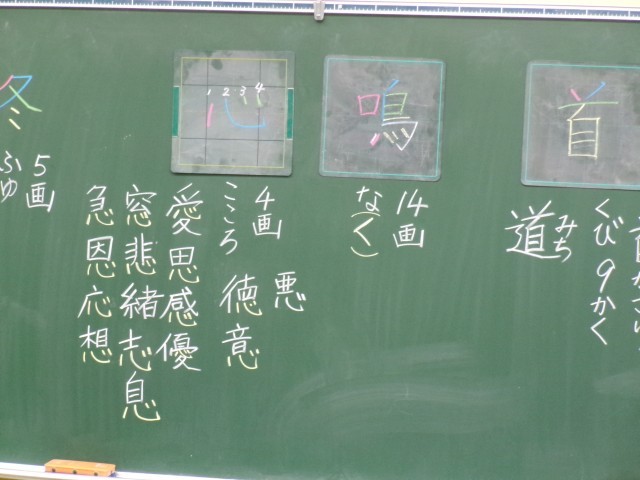 首
くび 9かく
みち
道
鳴
14画
な(く)
心
1 2 3 4
4画 悪
こころ 徳意
愛思感優
窓悲緒志息
急恩応想
冬
5画
ふゆ